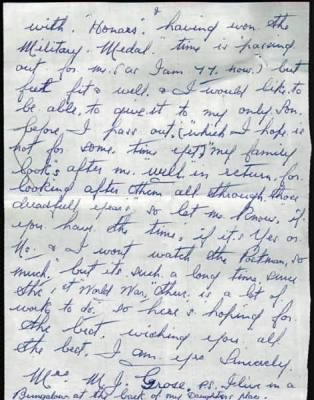 with "Honors" having won the
Military Medal. time is passing
out for me. (as I am 77. now.) but
feel fit & well. & I would like to
be able, to give it to my only Son.
before, I pass out, (which I hope is
not for some time yet) "my family
look's after me. "well in return for
looking after them all through those
dreadfull years" so let me know "if
you have the time, if it's Yes or
No. & I wont watch the Postman, so
much," but its such a long time, since
the 1st World War, "there is a lot of
work to do" so here's hoping for
the best. wishing you all
the best. I am yrs Sincerely.
Mrs M. J. Grose. P.S. I live in a
Bungalow at the back of my Daughters place.